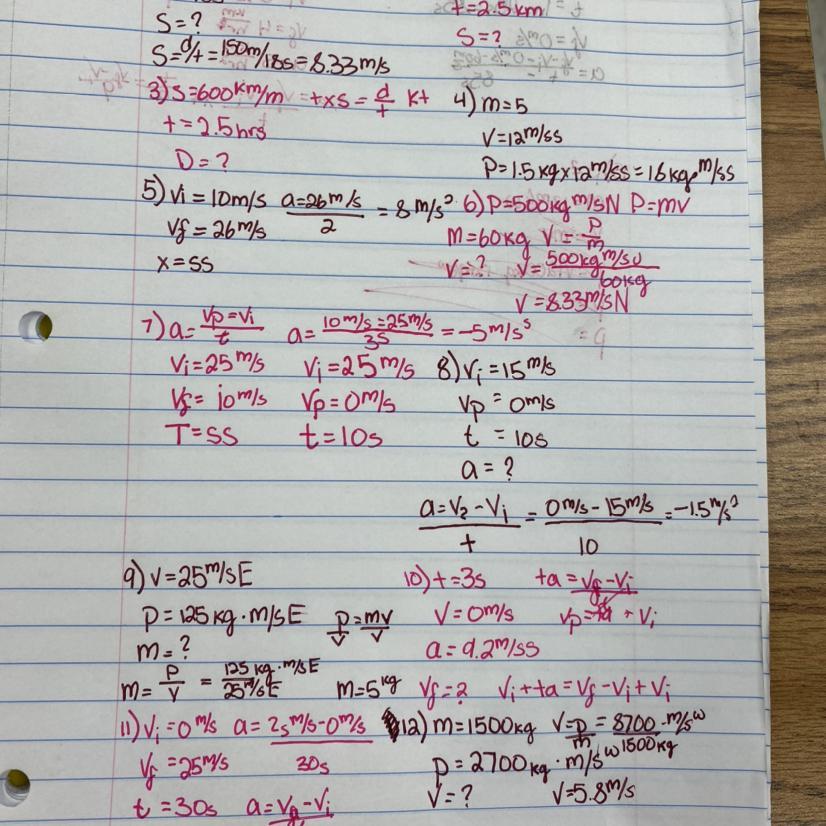 t=2.5km
S=?
S=?
S=d/t=150m/18s=8.33m/s
3) S=600km/m =t×s=d/t Kt
t=2.5hrs
D=?
4) m=5
V=12m/ss
P=1.5kg×12m/ss=16kg•m/ss
5) Vi=10m/s a=26m/s/2 =8m/s²
Vf=26m/s
x=ss
6) P=500kgm/sN P=mV
M=60kg V=P/m
V=? V=500kgm/sN/60kg
V=8.33m/sN
7) a=Vp=Vi/t a=10m/s=25m/s/3s=-5m/s⁵
Vi=25m/s Vi=25m/s
Vf=10m/s Vp=0m/s
T=ss t=10s
8) Vi=15m/s
Vp=0m/s
t=10s
a=?
a=V2-Vi/t = 0m/s-15m/s/10 =-1.5m/s²
9) V=25m/sE
P=125kg·m/sE P/V=mV/V
m=?
m=P/V=125kg·m/sE/25m/sE m=5kg
10) t=3s ta=Vf-Vi
V=0m/s Vp=ta+Vi
a=9.2m/ss
Vf=? Vi+ta=Vf-Vi+Vi
11) Vi=0m/s a=25m/s-0m/s/30s
Vf=25m/s
t=30s a=Vf-Vi
12) m=1500kg V=P/m=8700·m/sW/1500kg
P=2700kg·m/sW
V=? V=5.8m/s